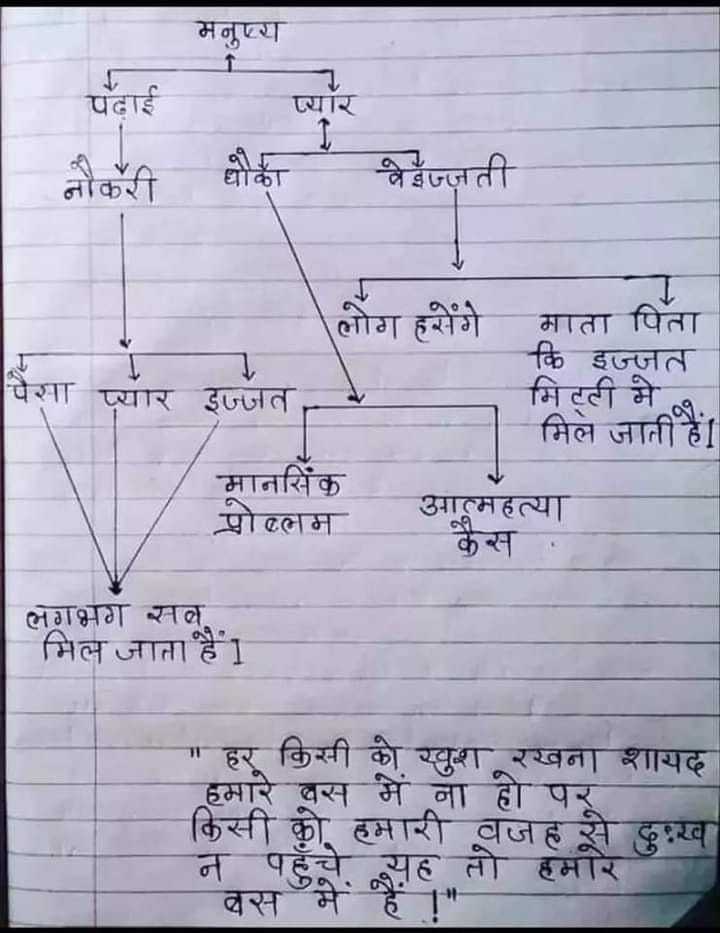 मनुष्य
पढ़ाई प्यार
नौकरी धौका बेइज्जती
लोग हसेंगे माता पिता
कि इज्जत
पैसा प्यार इज्जत मिट्टी मे
मिल जाती हैं।
मानसिक
प्रोब्लम
आत्महत्या
कैस
लगभग सब
मिल जाता हैं।
" हर किसी को खुश रखना शायद
हमारे बस में ना हो पर
किसी को हमारी वजह से दुःख
न पहुँचे यह तो हमारे
बस में हैं !"